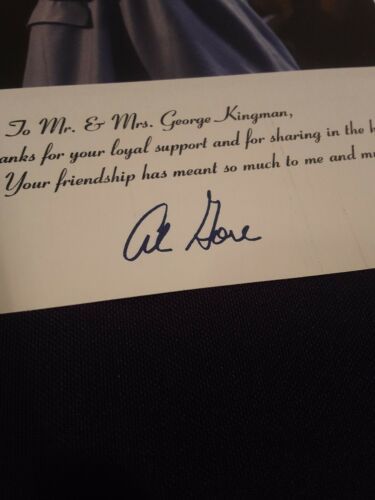 To Mr. & Mrs. George Kingman,
anks for your loyal support and for sharing in the h
Your friendship has meant so much to me and m
Al Gore